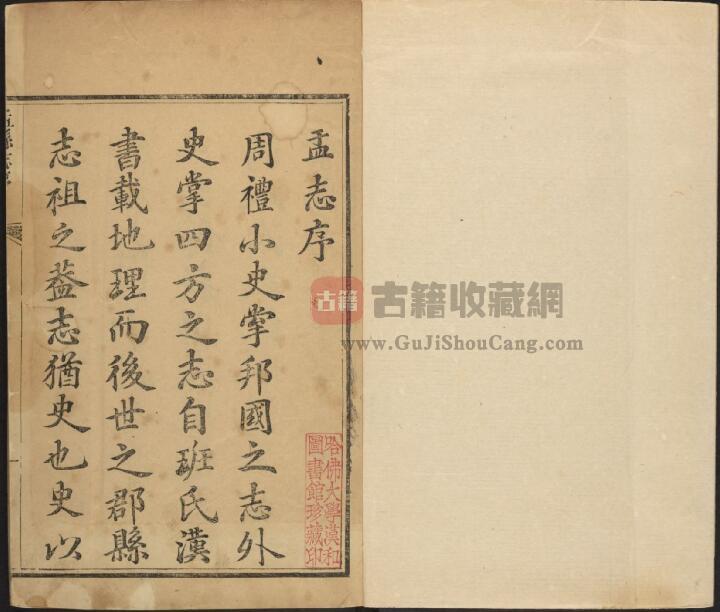 盂志序
周禮小史掌邦國之志外
史掌四方之志自班氏漢
書載地理而後世之郡縣
志祖之葢志猶史也史以
哈佛大學漢和
圖書館珍藏印
古籍
古籍收藏網
www.GuJiShouCang.com